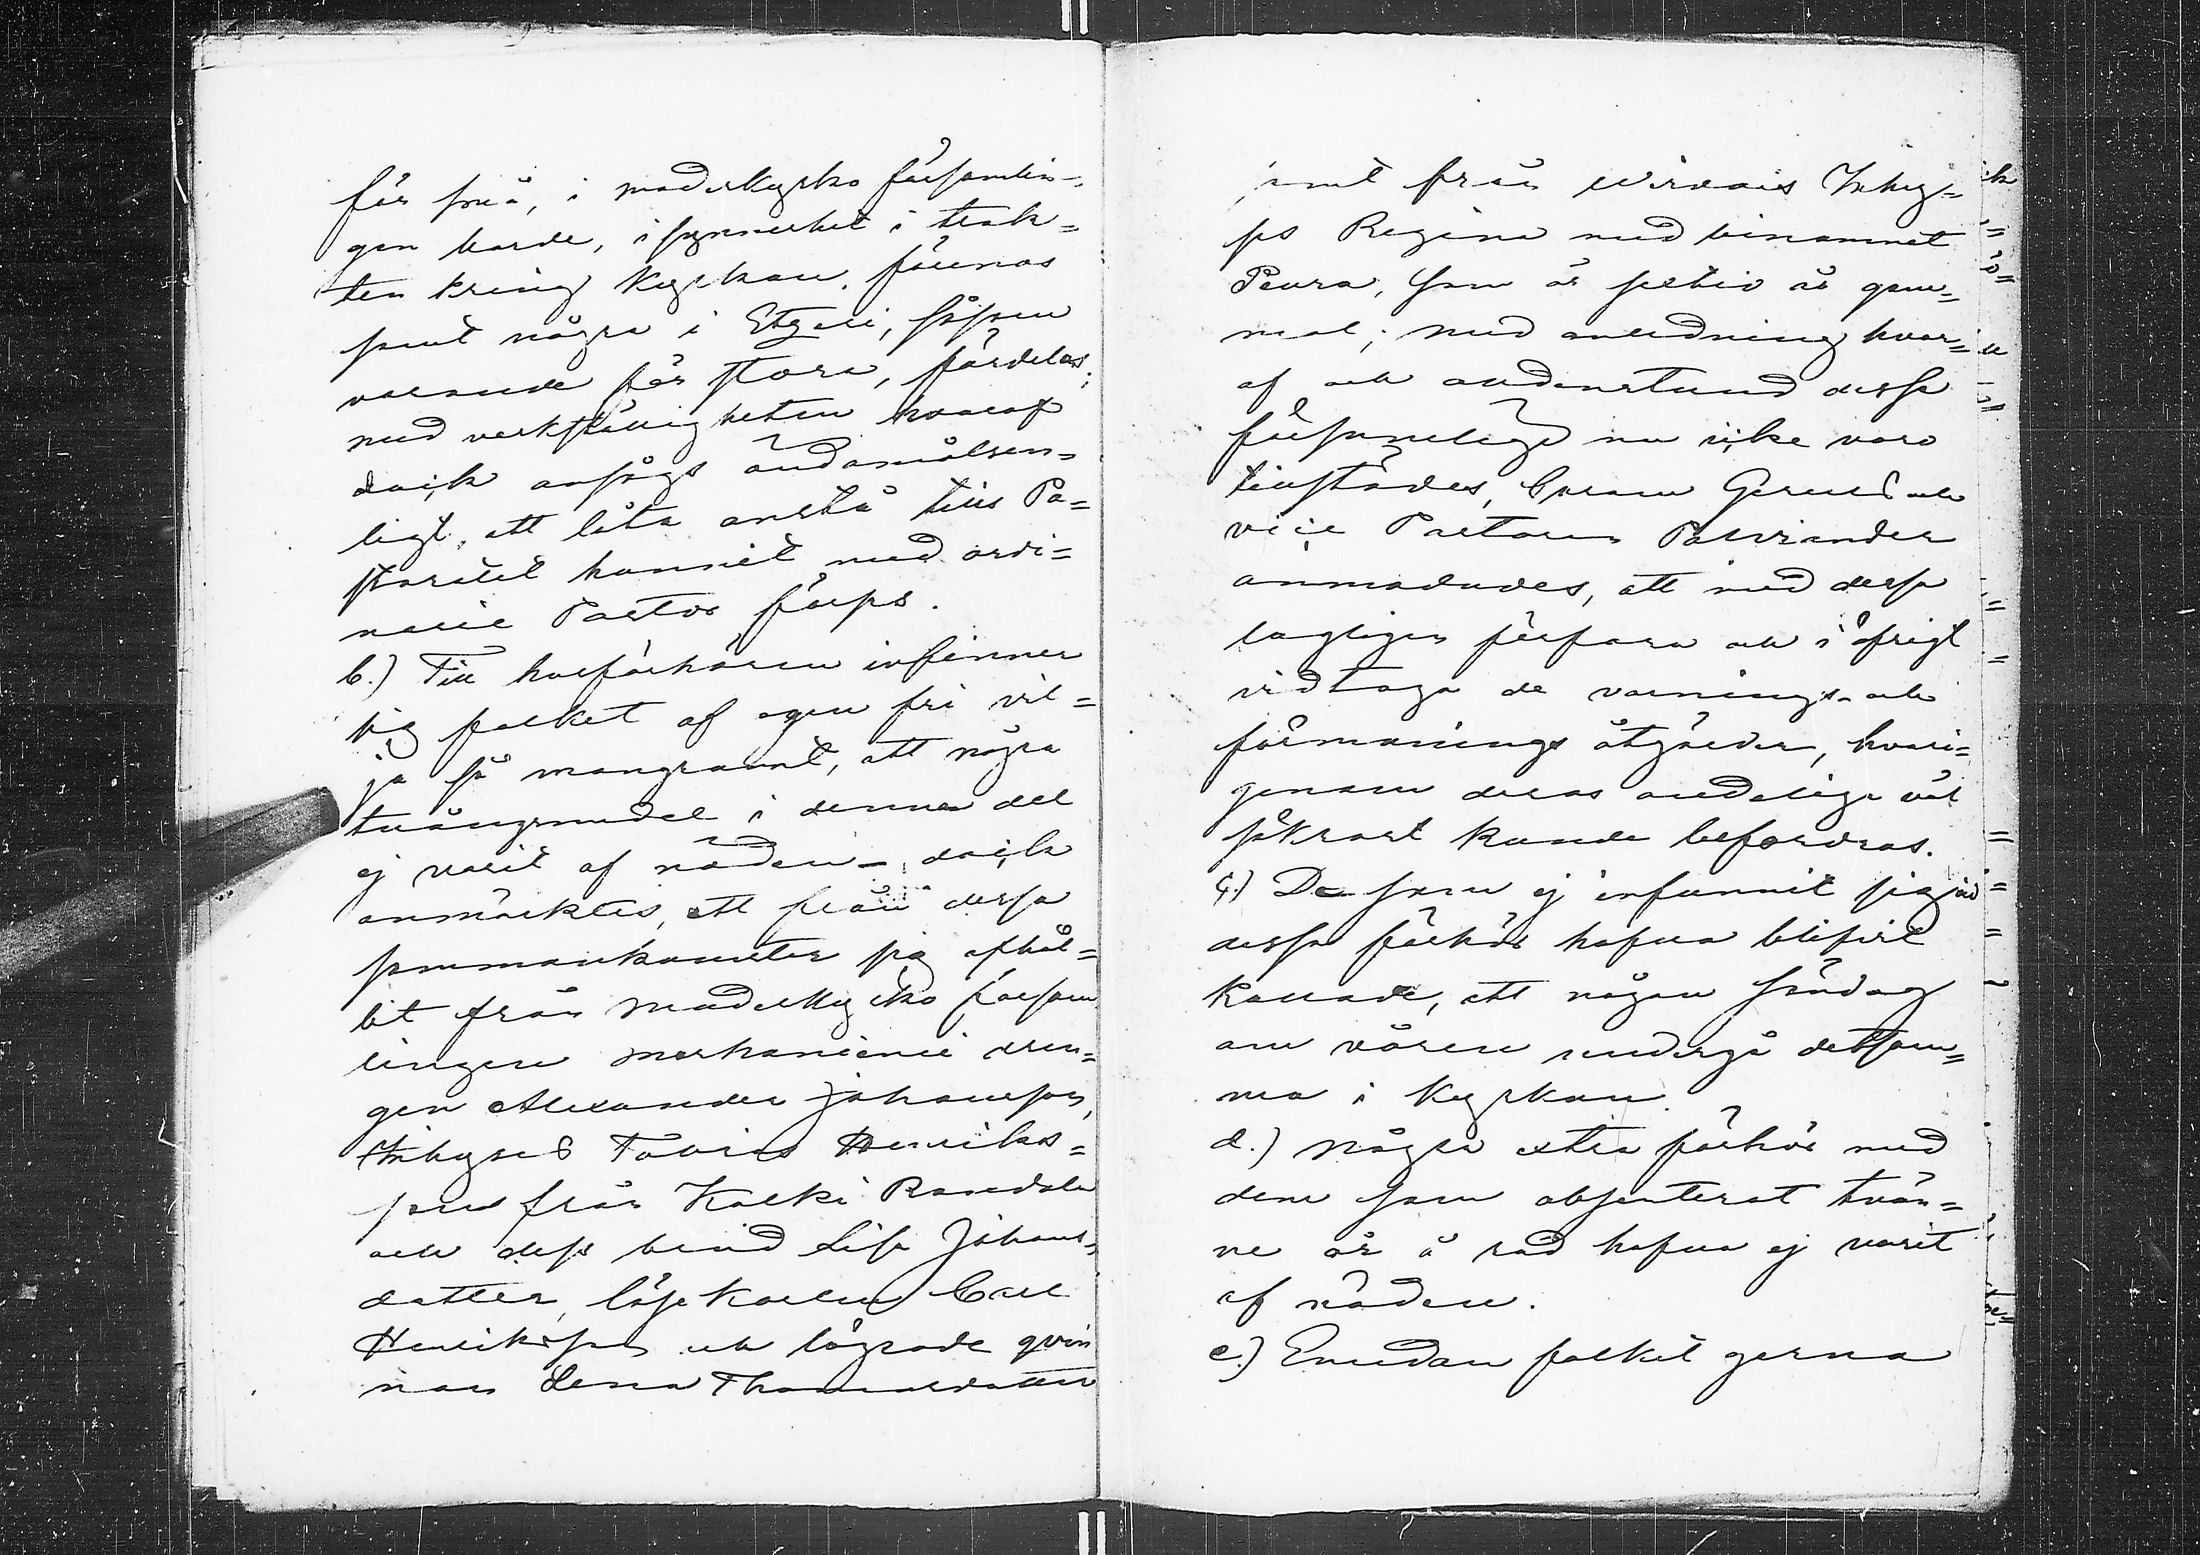 för små, i moderkyrko församlin-
gen borde, i synnerhet i trak=
ten kring kyrkan, förenas
samt några i Etzeri, såsom
varande för stora, fördelas;
med verkställigheten hvaraf
dock ansågs ändamålsen=
ligt, att låta anstå tills Pa=
storatet hunnit med ordi=
narie Pastor förses.
b.) Till husförhören infinner
sig folket af egen fri vil=
ja så mangrannt, att några
tvångsmedel i denna del
ej varit af nöden – dock
anmärktes, att från dessa
sammankomster sig afhål=
lit från Moderkyrko försam
lingen mechanici dren=
gen Alexander Johansson,
Inhyses Tobias Henriks=
son från Kolki Ramdala
och dess hind Lisa Johans-
dotter, löskarlen Carl
Henriksson och lägrade qvin
nan Lena Thomasdotter
samt från Wirdois Inhy=
ses Regina med binamnet
Peura, som är sextio år gam=
mal; med anledning hvar=
af och andenstund dessa
församlinge nu icke voro
tillstädes, Coram Gerens och
vice Pastoren Palvander
anmodades, att med dessa
lagligen förfara och i öfrigt
vidtaga de varnings- och
förmanings åtgärder, hvari=
genom deras andeliga väl
säkrast kunde befordras.
c.) De som ej infunnit sig vid
dessa förhör hafva blifvit
kallade, att någon söndag
om våren undergå detsam=
ma i kyrkan.
d.) Några extra förhör med
dem som absenterat tvän=
ne år å rad hafva ej varit
af nöden.
e.) Emedan folket gerna